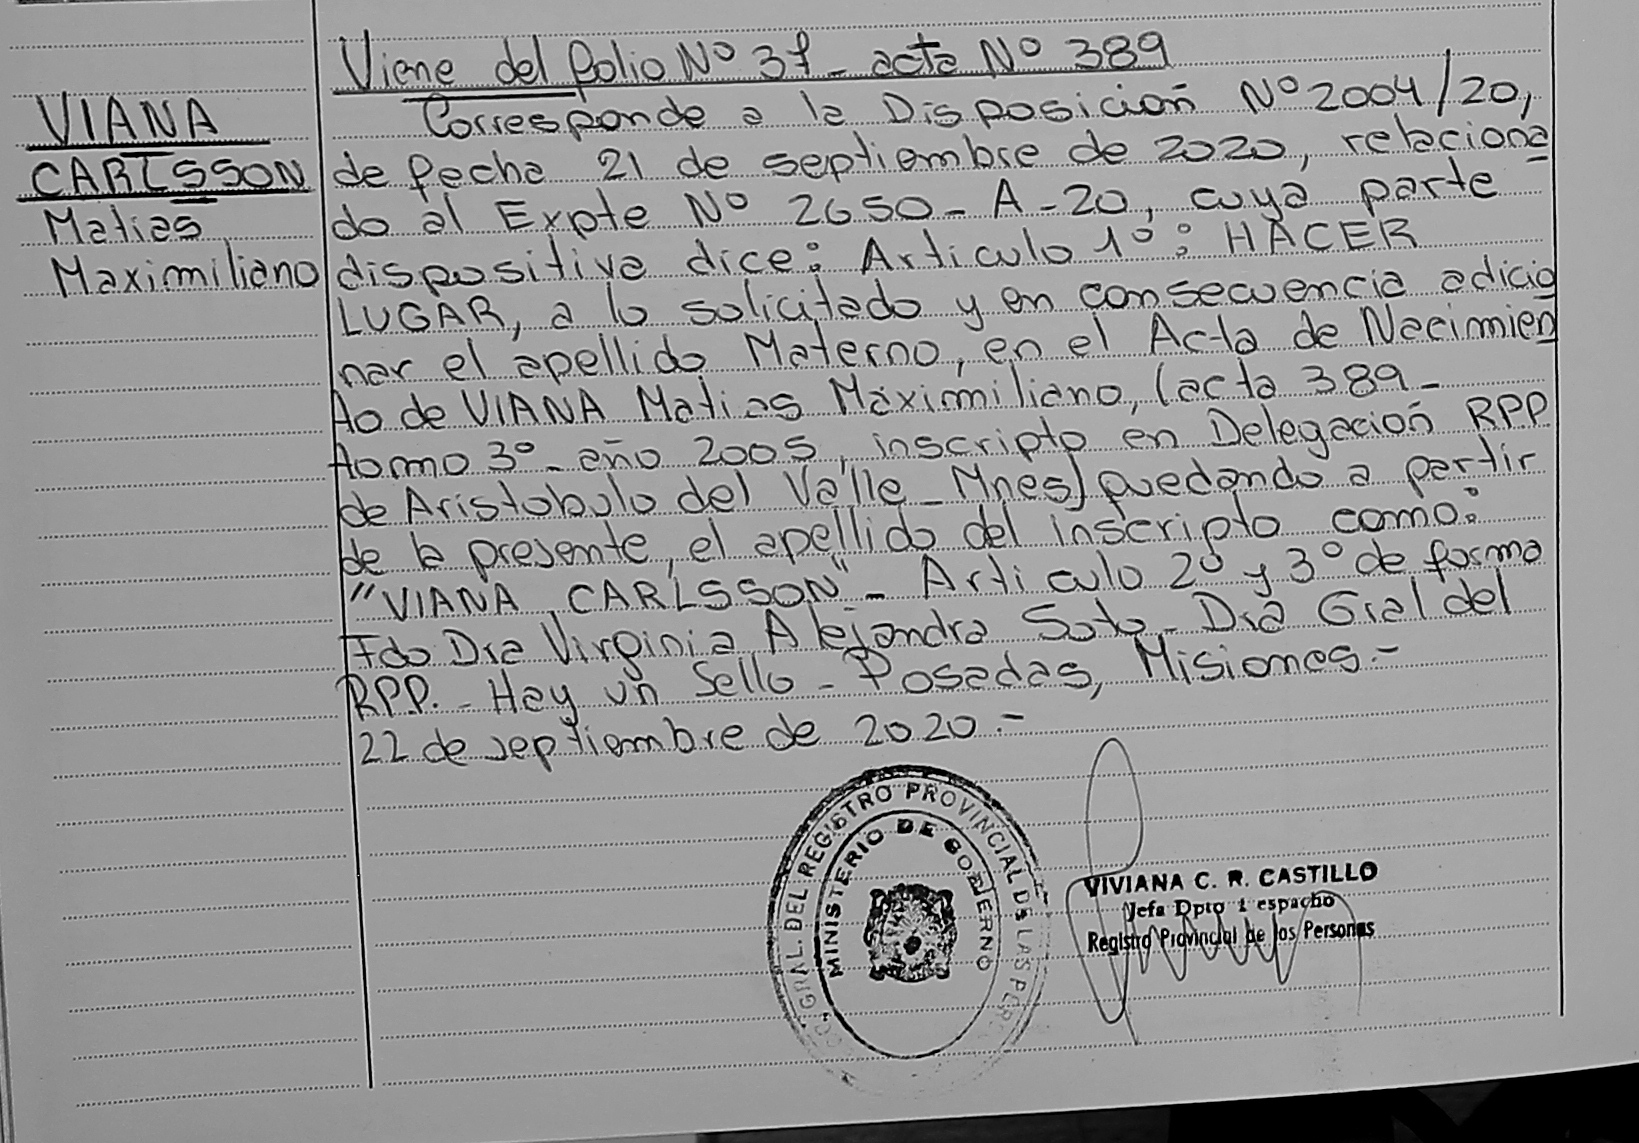 Viene del folio Nº 37 - acta Nº 389
VIANA
CARLSSON
Matias
Maximiliano
Corresponde a la Disposición Nº 2004/20,
de fecha 21 de septiembre de 2020, relaciona
do al Expte Nº 2650 - A - 20, cuya parte
dispositiva dice: Articulo 1º: HACER
LUGAR, a lo solicitado y en consecuencia adicio
nar el apellido Materno, en el Acta de Nacimien
to de VIANA Matias Maximiliano, (acta 389 -
tomo 3º - año 2005, inscripto en Delegación RPP
de Aristobulo del Valle - Mnes) quedando a partir
de la presente, el apellido del inscripto como:
"VIANA CARLSSON" - Articulo 2º y 3º de forma
Fdo Dra Virginia Alejandra Soto - Dra Gral del
RPP. - Hay un Sello - Posadas, Misiones.-
22 de septiembre de 2020.-
GRAL. DEL REGISTRO PROVINCIAL DE LAS
MINISTERIO DE GOBIERNO
VIVIANA C. R. CASTILLO
Jefa Dpto espacho
Registro Provincial de las Personas